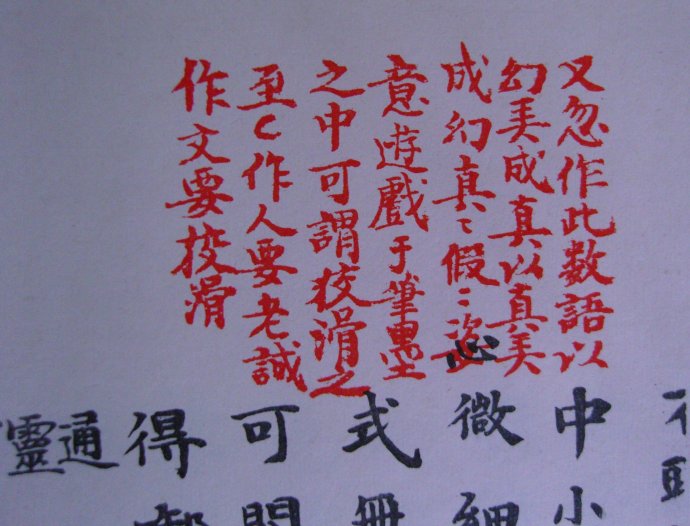 又忽作此数語以
幻美成真以真美
成幻真〻假〻恣
意遊戲于筆墨
之中可謂狡滑之
至く作人要老誠
作文要狡滑
中小
微細
式
可
得
通
靈